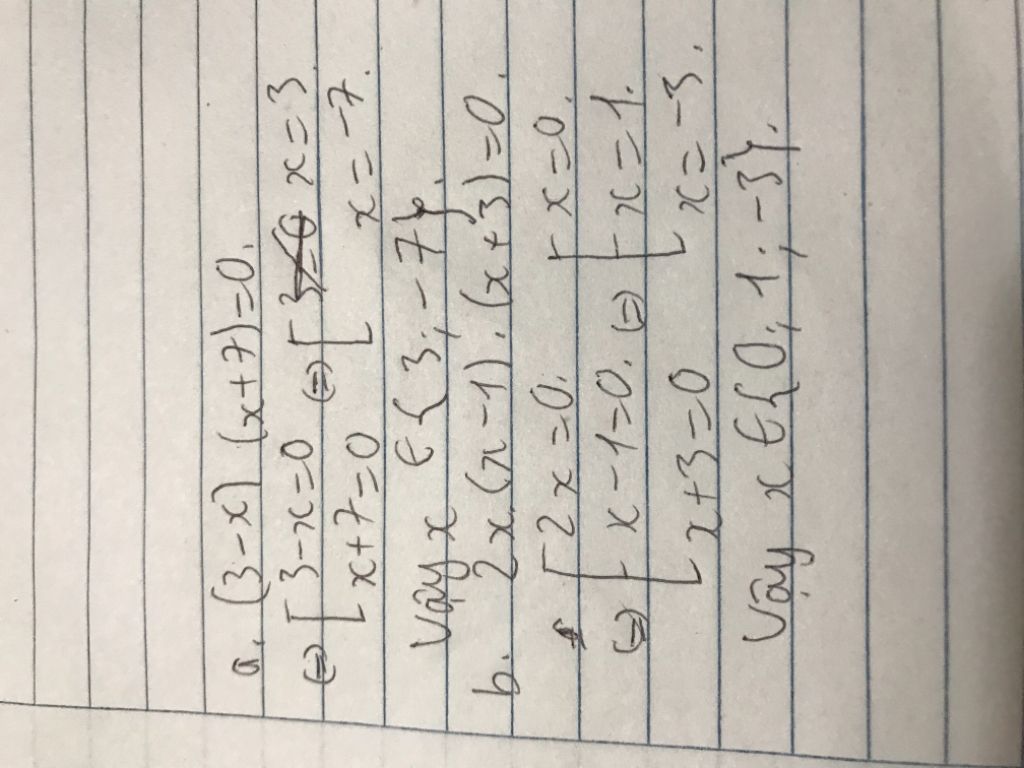 a. (3-x) (x+7)=0.
(=) [ 3-x=0 (=) [ x=3
[ x+7=0 [ x=-7.
Vậy x ∈ { 3; -7}.
b. 2x.(x-1).(x+3)=0.
[ 2x=0. [ x=0.
(=) [ x-1=0. (=) [ x=1.
[ x+3=0 [ x=-3.
Vậy x ∈ {0; 1; -3}.